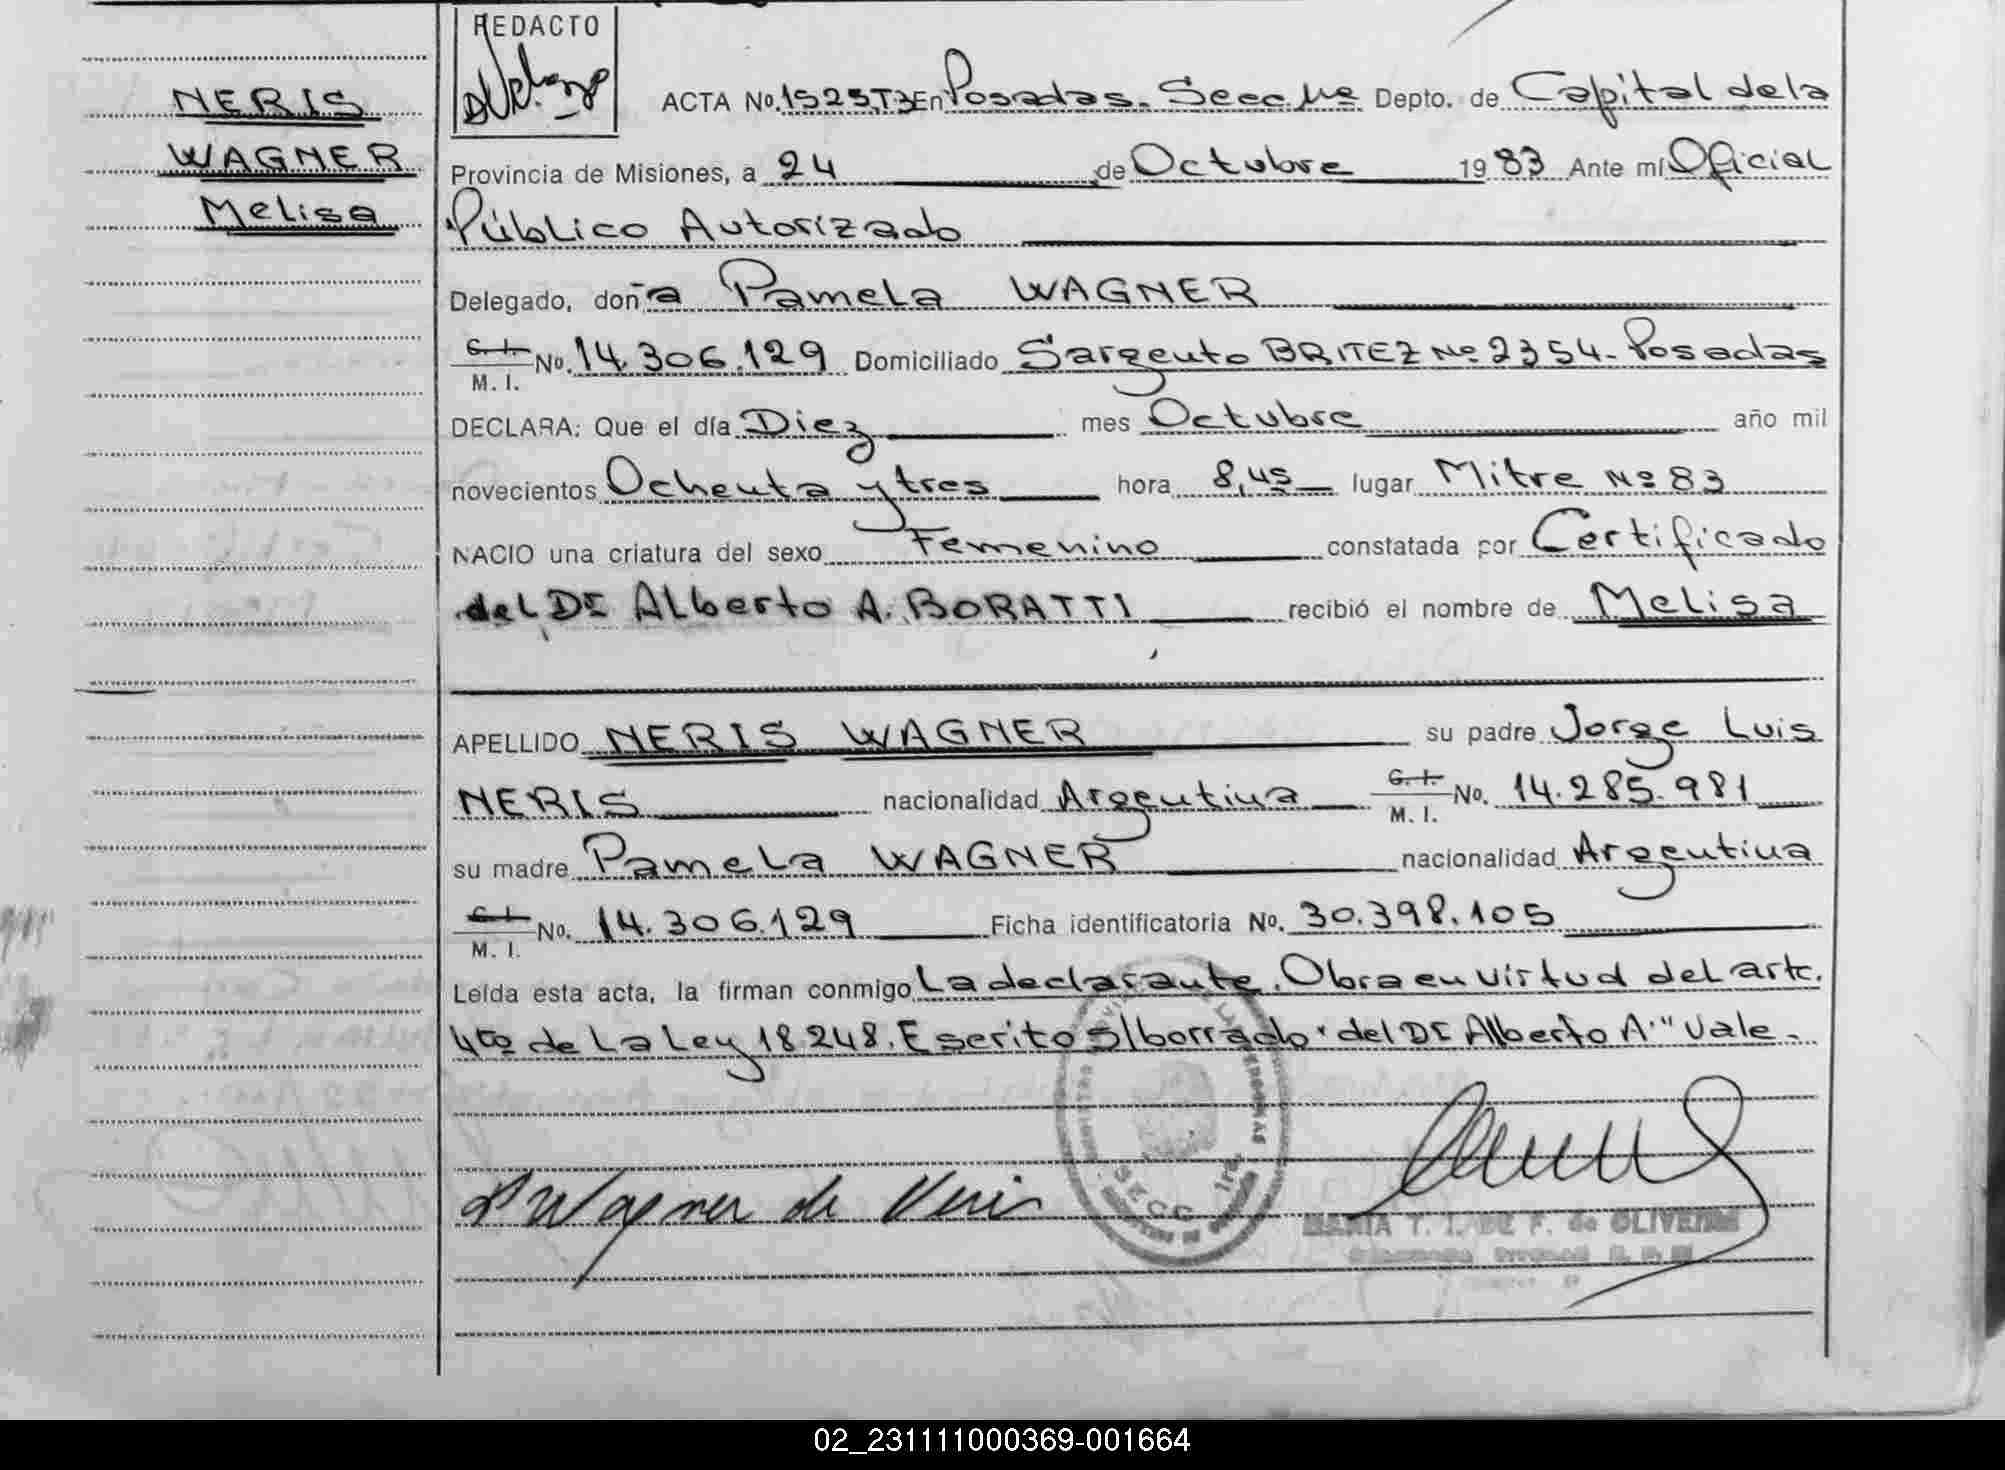 NERIS
WAGNER
Melisa
REDACTO
ACTA No. 1525, T3 En Posadas. Secc 1ra Depto. de Capital de la
Provincia de Misiones, a 24 de Octubre 1983 Ante mí Oficial
Público Autorizado
Delegado, doña Pamela WAGNER
C. I.
M. I.
No. 14.306.129 Domiciliado Sargento BRITEZ Nº 2354. Posadas
DECLARA: Que el día Diez mes Octubre año mil
novecientos Ochenta y tres hora 8,45 lugar Mitre Nº 83
NACIO una criatura del sexo Femenino constatada por Certificado
del Dr Alberto A. BORATTI recibió el nombre de Melisa
APELLIDO NERIS WAGNER su padre Jorge Luis
NERIS nacionalidad Argentina C. I. M. I. No. 14.285.981
su madre Pamela WAGNER nacionalidad Argentina
C. I.
M. I.
No. 14.306.129 Ficha identificatoria No. 30.398.105
Leída esta acta, la firman conmigo La declarante. Obra en virtud del art.
4to de La Ley 18248. Escrito s/borrado "del Dr Alberto A" Vale.
P Wagner de Neris
SECC. 1ra.
MARIA T. I. DE F. de OLIVEIRA
02_231111000369-001664